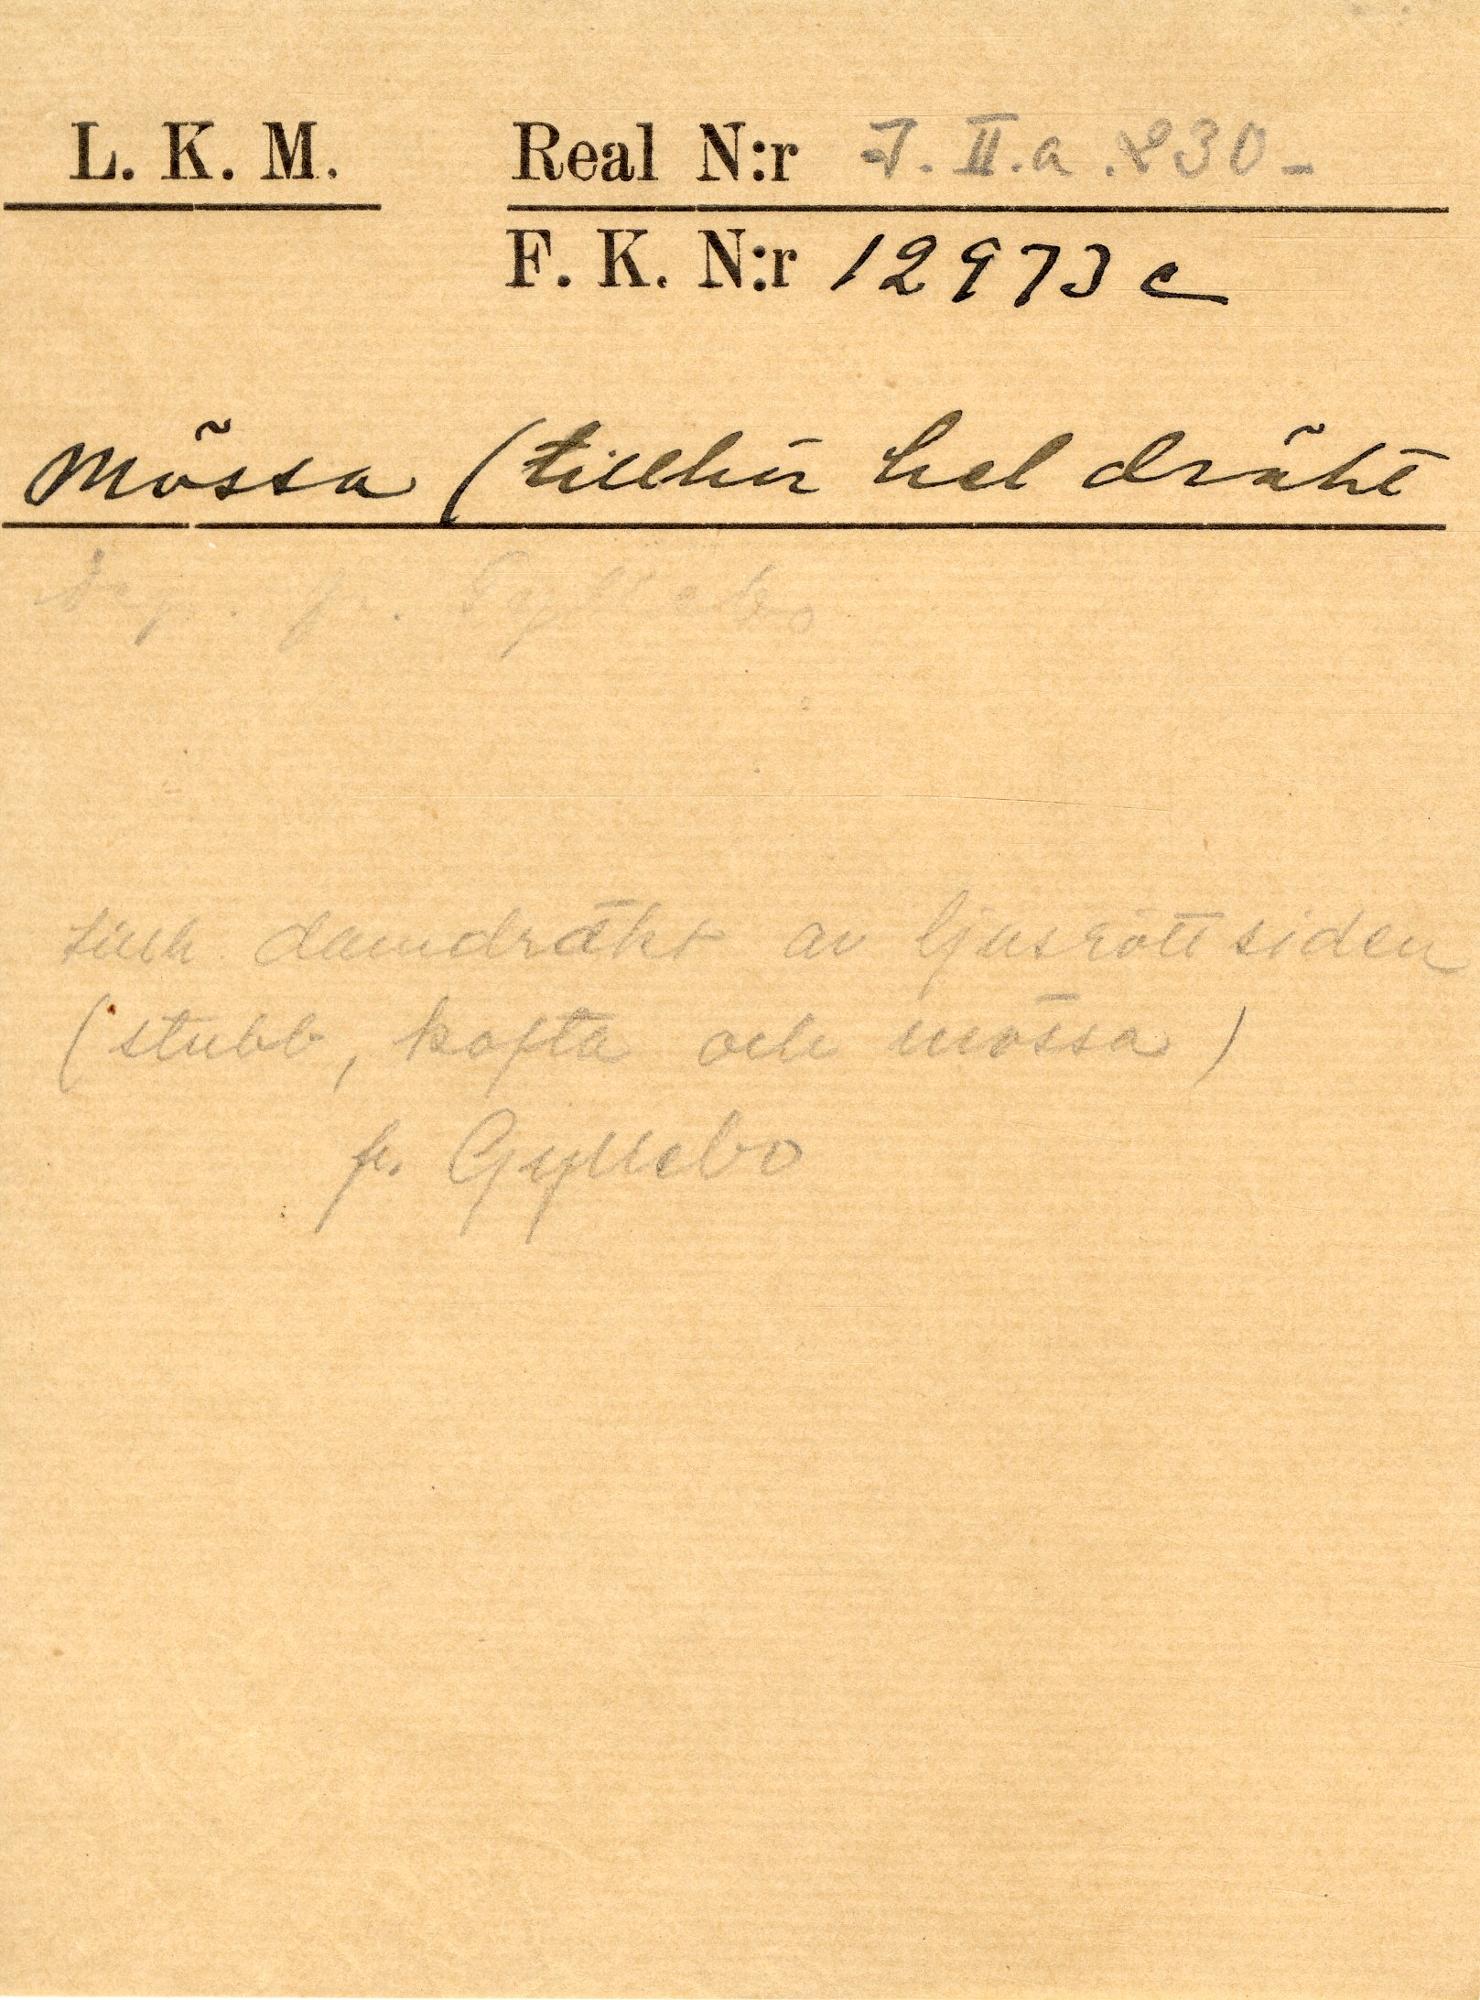 L. K. M. Real N:r J. II. a. 230-
F. K. N:r 12973 c
Mössa (tillhör hel dräkt
Dep. fr. Gyllebo
damdräkt av ljusrött siden
(stubb, kofta och mössa)
fr. Gyllebo